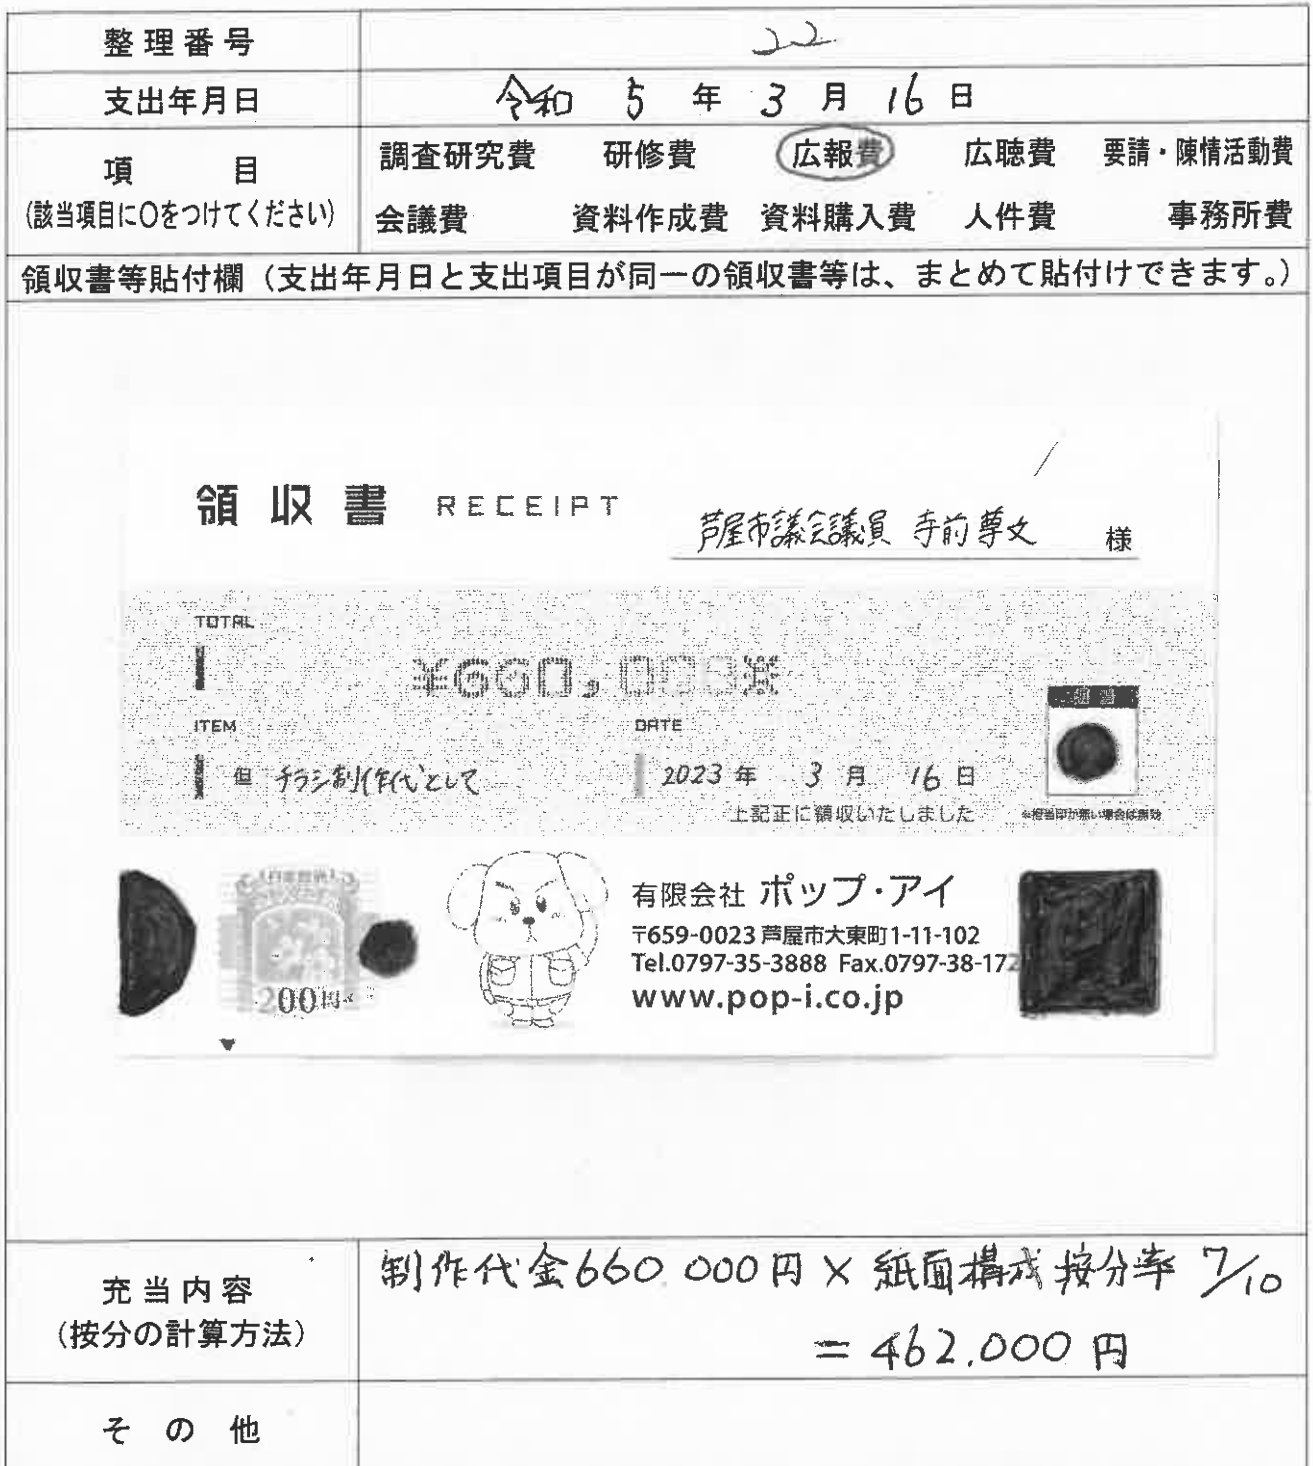 整理番号 22
支出年月日 令和 5 年 3 月 16 日
項目 調査研究費 研修費 広報費 広聴費 要請・陳情活動費
(該当項目に○をつけてください) 会議費 資料作成費 資料購入費 人件費 事務所費
領収書等貼付欄（支出年月日と支出項目が同一の領収書等は、まとめて貼付けできます。）
領収書 RECEIPT
芦屋市議会議員 寺前尊文 様
TOTAL
¥660,000※
ITEM DATE
但 チラシ制作代として 2023 年 3 月 16 日
上記正に領収いたしました
※担当印が無い場合は無効
200円
有限会社 ポップ・アイ
〒659-0023 芦屋市大東町1-11-102
Tel.0797-35-3888 Fax.0797-38-172
www.pop-i.co.jp
充当内容 制作代金660.000円×紙面構成按分率 7/10
(按分の計算方法) = 462.000円
その他